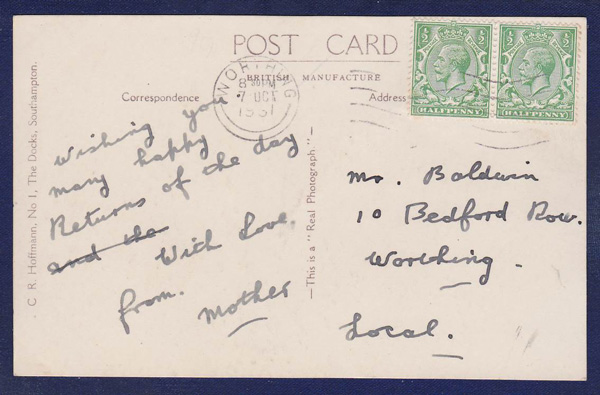 POST CARD
BRITISH MANUFACTURE
Correspondence
Address
WORTHING
7 OCT
1931
½ ½
HALFPENNY
½ ½
HALFPENNY
C. R. Hoffmann, No 1, The Docks, Southampton.
Wishing you
many happy
Returns of the day
and the With Love.
from.
Mother
—This is a "Real Photograph"—
Mr. Baldwin
10 Bedford Row.
Worthing.
Local.